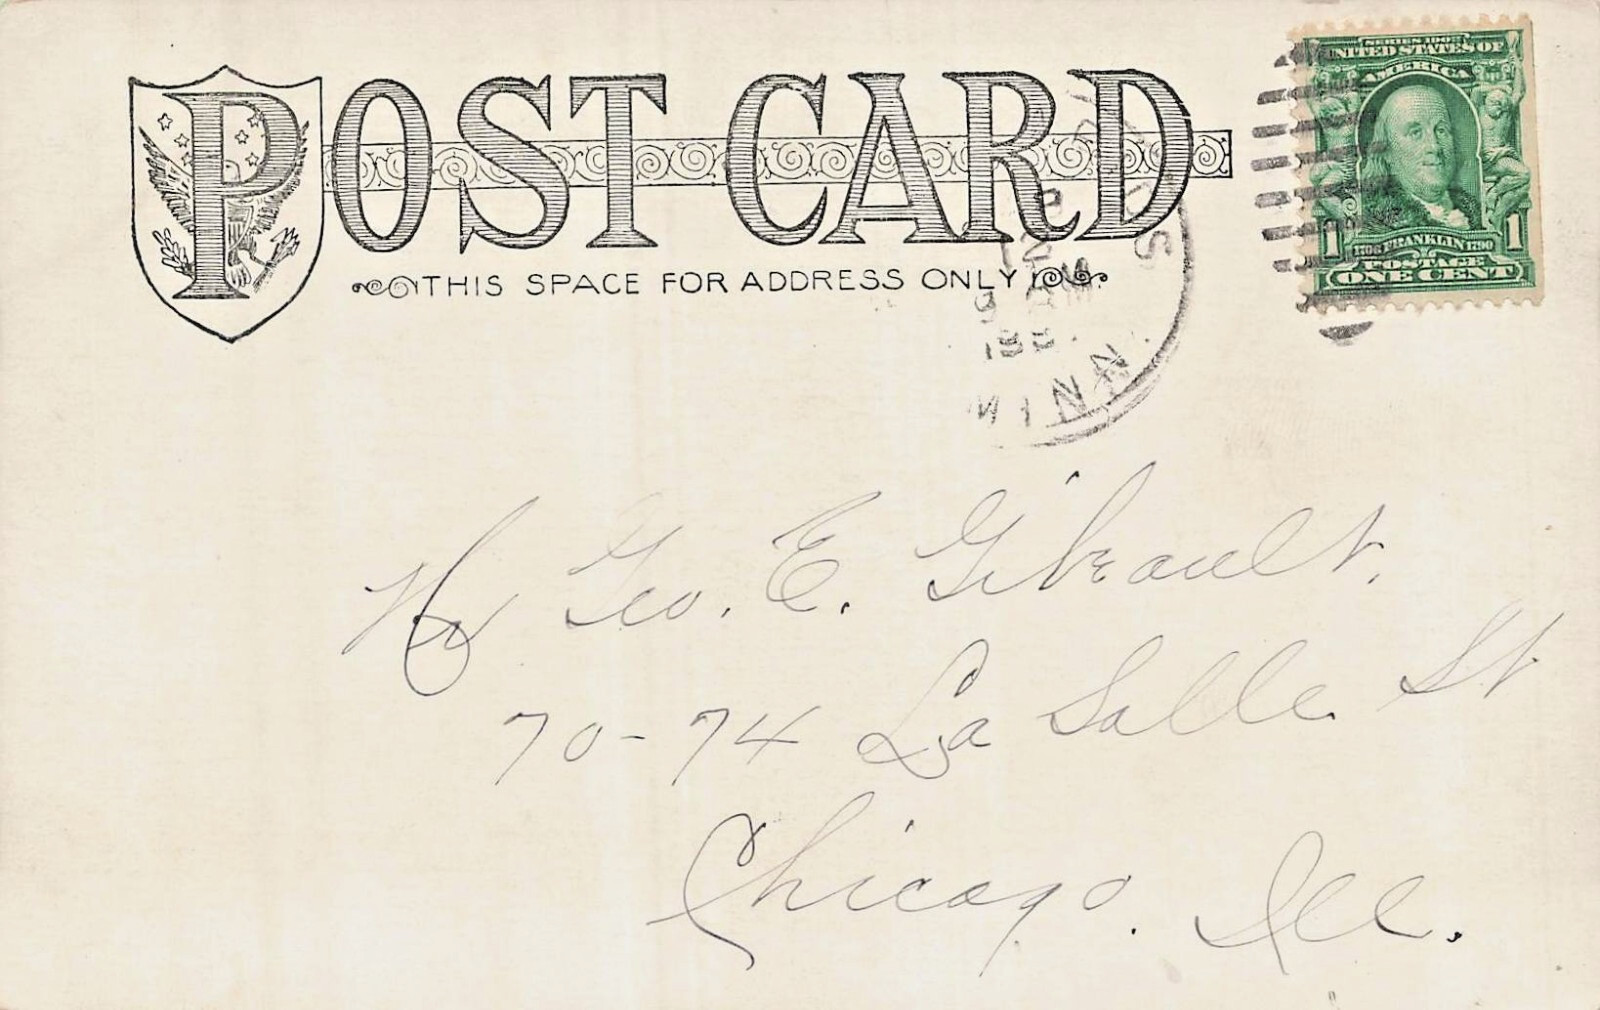 POST CARD
THIS SPACE FOR ADDRESS ONLY
SERIES 1902
UNITED STATES OF
AMERICA
1 1706 FRANKLIN 1790 1
POSTAGE
ONE CENT
MINN.
Mr Geo. E. Gibeault.
70-74 La Salle St
Chicago. Ill.